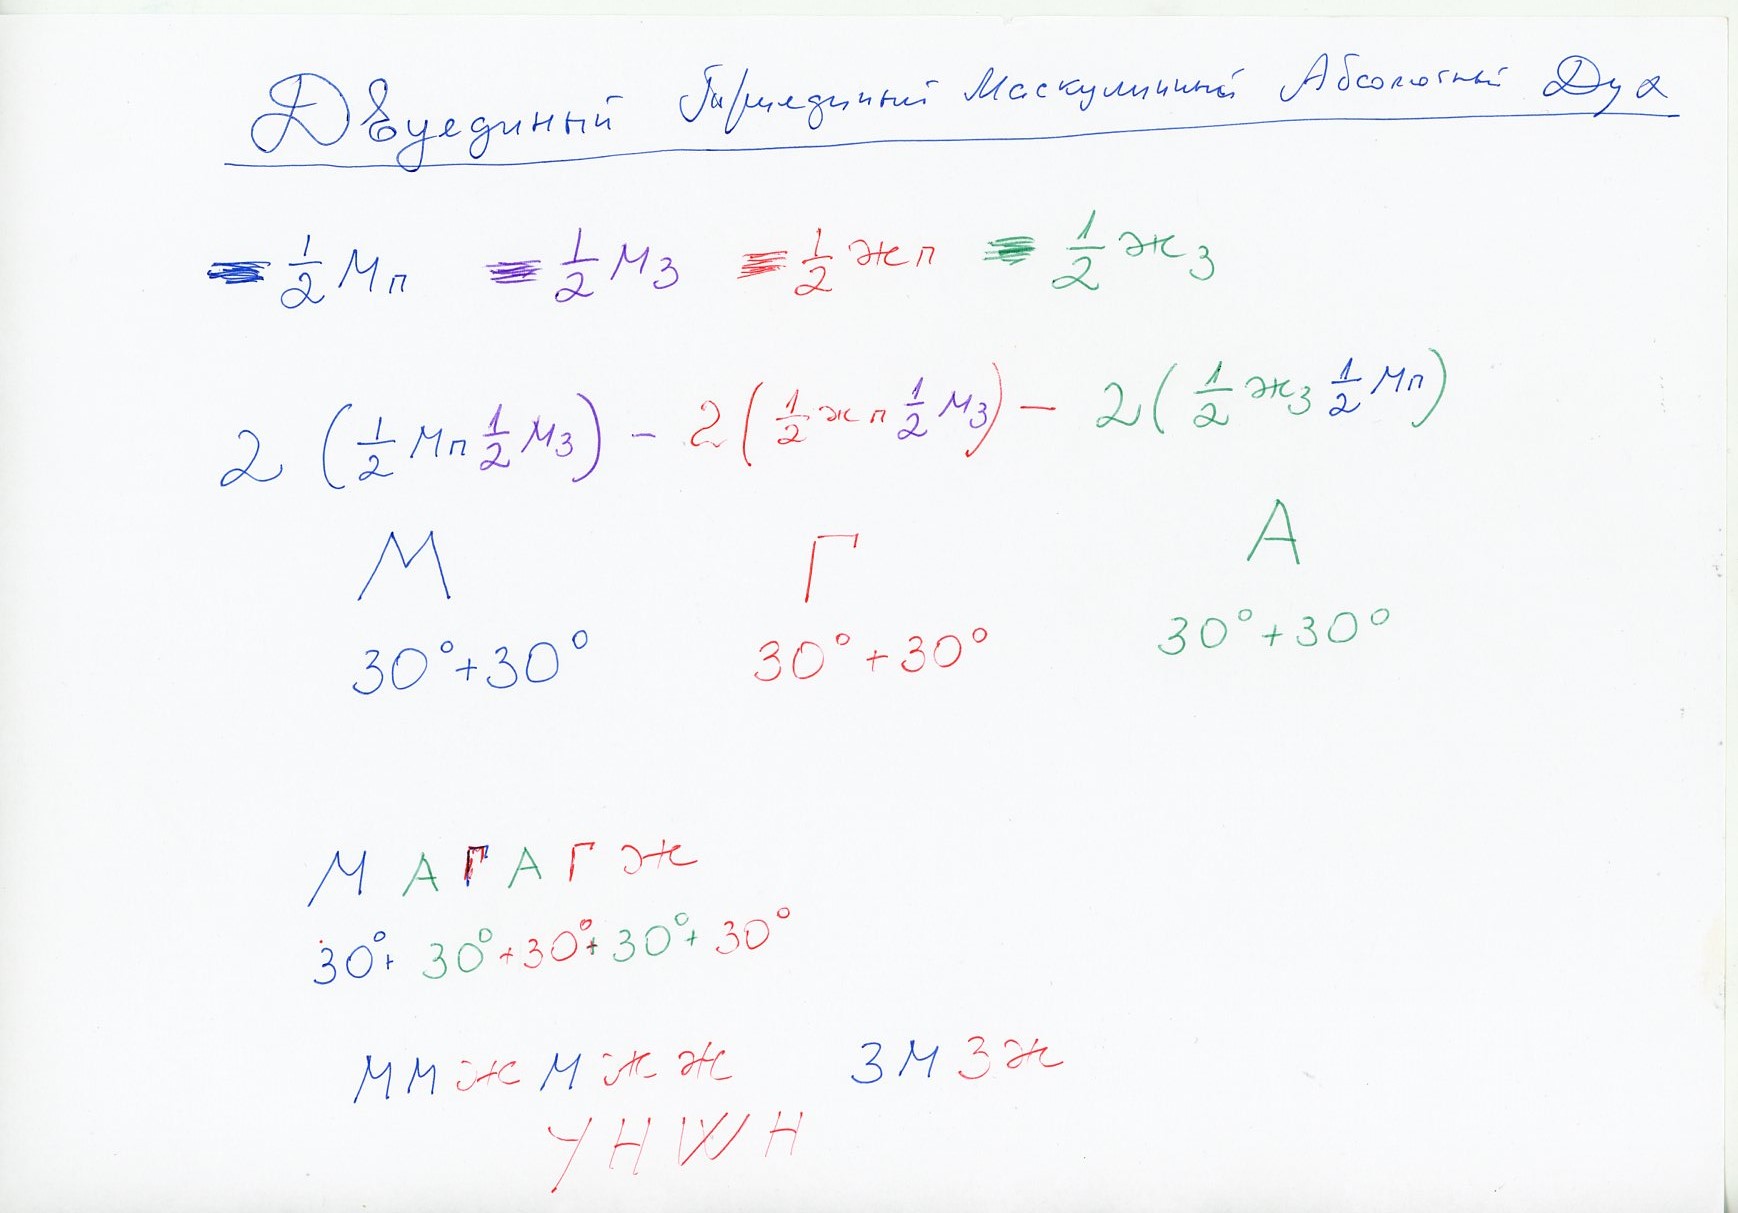 Двуединый Триединый Маскулинный Абсолютный Дух
= 1/2 Мп = 1/2 Мз = 1/2 жп = 1/2 жз
2 (1/2 Мп 1/2 Мз) - 2 (1/2 жп 1/2 Мз) - 2 (1/2 жз 1/2 Мп)
М Г А
30°+30° 30°+30° 30°+30°
М А Г А Г ж
30°+ 30°+30°+30°+ 30°
М М ж М ж ж 3М 3ж
YHWH